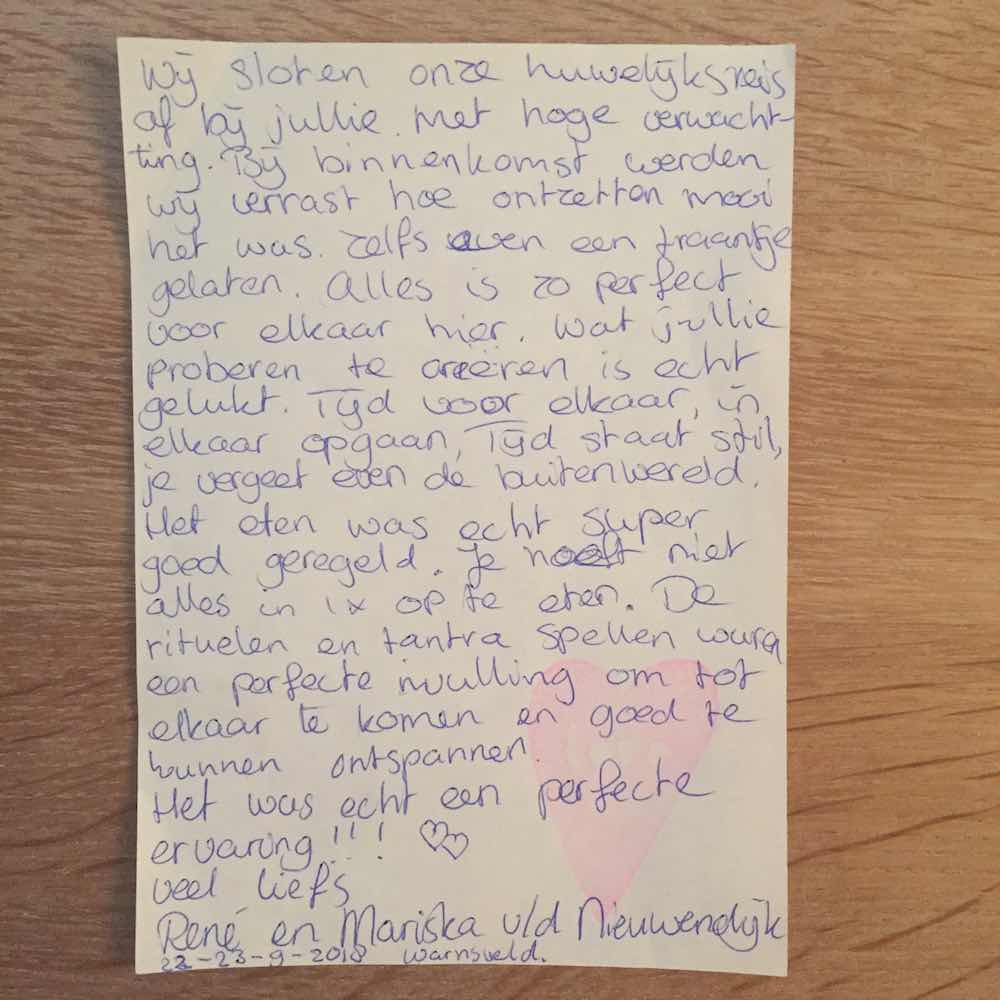 Wij sloten onze huwelijksreis
af bij jullie. Met hoge verwacht-
ting. Bij binnenkomst werden
wij verrast hoe ontzetten mooi
het was. Zelfs even een traantje
gelaten. Alles is zo perfect
voor elkaar hier. Wat jullie
proberen te creëren is echt
gelukt. Tijd voor elkaar, in
elkaar opgaan, Tijd staat stil,
je vergeet even de buitenwereld.
Het eten was echt super
goed geregeld. Je hoeft niet
alles in 1x op te eten. De
rituelen en tantra spellen
een perfecte invulling om tot
elkaar te komen en goed te
kunnen ontspannen.
Het was echt een perfecte
ervaring!!!
veel liefs
René en Mariska v/d Nieuwendijk
22-23-9-2018 Warnsveld.